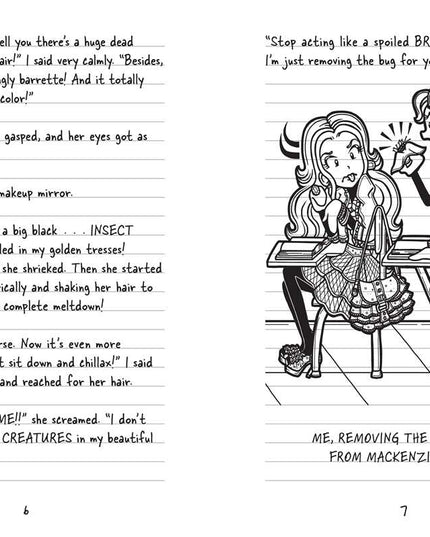 ell you there's a huge dead
air!" I said very calmly. "Besides,
ngly barrette! And it totally
color!"
gasped, and her eyes got as
makeup mirror.
a big black . . . INSECT
led in my golden tresses!
she shrieked. Then she started
rically and shaking her hair to
complete meltdown!
rse. Now it's even more
t sit down and chillax!" I said
and reached for her hair.
ME!!" she screamed. "I don't
CREATURES in my beautiful
6
"Stop acting like a spoiled BR
I'm just removing the bug for yo
ME, REMOVING THE
FROM MACKENZI
7